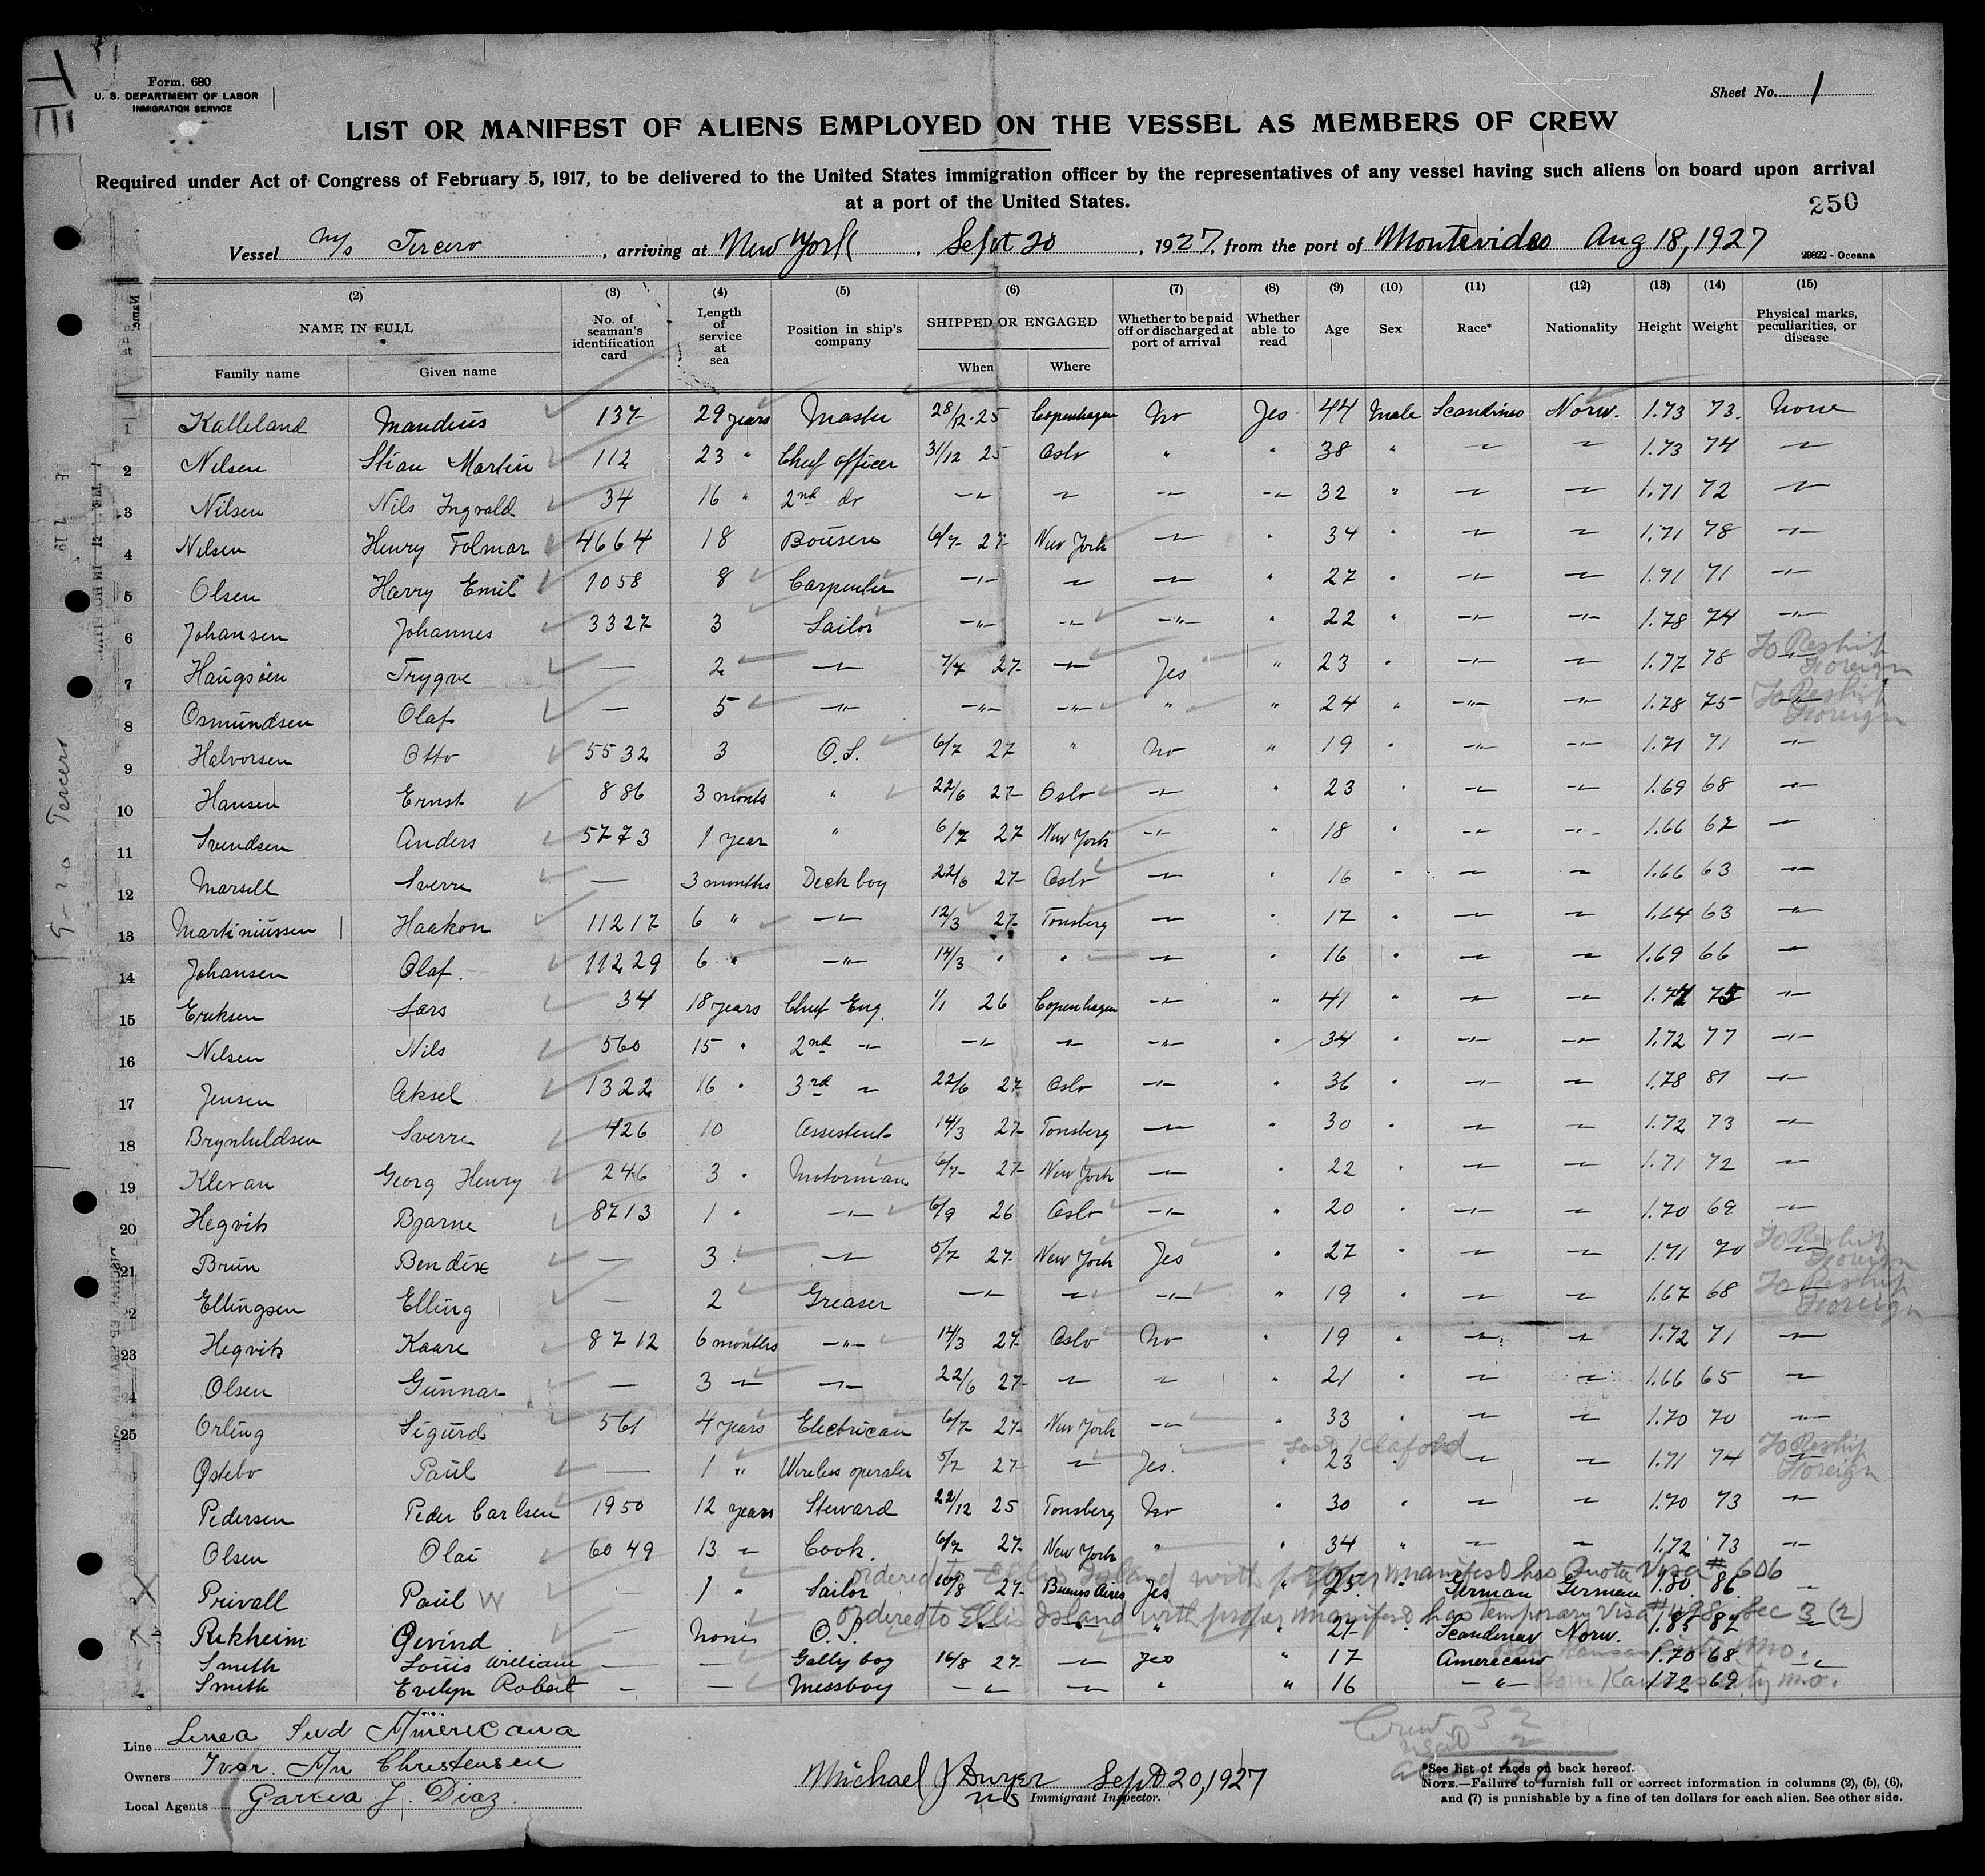 Form. 680
U. S. DEPARTMENT OF LABOR
INMIGRATION SERVICE
Sheet No. 1
LIST OR MANIFEST OF ALIENS EMPLOYED ON THE VESSEL AS MEMBERS OF CREW
Required under Act of Congress of February 5, 1917, to be delivered to the United States immigration officer by the representatives of any vessel having such aliens on board upon arrival
at a port of the United States.
250
Vessel M/s Tercero, arriving at New York, Sept 20, 1927, from the port of Montevideo Aug 18, 1927
29822 - Oceana
(2) (3) (4) (5) (6) (7) (8) (9) (10) (11) (12) (13) (14) (15)
NAME IN FULL
Family name Given name
No. of seaman's identification card
Length of service at sea
Position in ship's company
SHIPPED OR ENGAGED
When Where
Whether to be paid off or discharged at port of arrival
Whether able to read
Age
Sex
Race*
Nationality
Height
Weight
Physical marks, peculiarities, or disease
1 Kalleland Mandius 137 29 years Master 28/12-25 Copenhagen No Yes 44 Male Scandinav Norw. 1.73 73 None
2 Nilsen Stian Martin 112 23 " Chief officer 31/12 25 Oslo " " 38 " -"- -"- 1.73 74 -"-
3 Nilsen Nils Ingvald 34 16 " 2nd do -"- -"- -"- -"- 32 " -"- -"- 1.71 72 -"-
4 Nilsen Henry Folmar 4664 18 Bousen 6/7- 27- New York -"- " 34 " -"- -"- 1.71 78 -"-
5 Olsen Harry Emil 1058 8 Carpenter -"- -"- -"- " 27 " -"- -"- 1.71 71 -"-
6 Johansen Johannes 3327 3 Sailor -"- -"- -"- " 22 " -"- -"- 1.78 74 -"-
7 Haugsoen Trygve — 2 -"- 7/7 27- -"- Yes " 23 " -"- -"- 1.77 78 -"- To Reship Foreign
8 Osmundsen Olaf — 5 -"- -"- -"- " " 24 " -"- -"- 1.78 75 -"- To Reship Foreign
9 Halvorsen Otto 5532 3 O.S. 6/7 27 " No " 19 " -"- -"- 1.71 71 -"-
10 Hansen Ernst 886 3 monts " 22/6 27- Oslo -"- " 23 " -"- -"- 1.69 68 -"-
11 Svendsen Anders 5773 1 year " 6/7 27 New York -"- " 18 " -"- -"- 1.66 67 -"-
12 Marsell Sverre — 3 months Deck boy 22/6 27- Oslo -"- " 16 " -"- -"- 1.66 63 -"-
13 Martiniussen Haakon 11217 6 " -"- 12/3 27- Tonsberg -"- " 17 " -"- -"- 1.64 63 -"-
14 Johansen Olaf. 11229 6 " -"- 14/3 " " -"- " 16 " -"- -"- 1.69 66 -"-
15 Eriksen Lars 34 18 years Chief Eng. 1/1 26 Copenhagen -"- " 41 " -"- -"- 1.77 75 -"-
16 Nilsen Nils 560 15 " 2nd -"- -"- -"- -"- " 34 " -"- -"- 1.72 77 -"-
17 Jensen Aksel 1322 16 " 3rd -"- 22/6 27 Oslo -"- " 36 " -"- -"- 1.78 81 -"-
18 Brynhildsen Sverre 426 10 Assistent 14/3 27- Tonsberg -"- " 30 " -"- -"- 1.72 73 -"-
19 Klevan Georg Henry 246 3 " Motorman 6/7- 27- New York -"- " 22 " -"- -"- 1.71 72 -"-
20 Hegvik Bjarne 8713 1 " -"- 6/9 26 Oslo -"- " 20 " -"- -"- 1.70 69 -"-
21 Brun Bendix — 3 " -"- 5/7 27- New York Yes " 27 " -"- -"- 1.71 70 -"- To Reship Foreign
22 Ellingsen Elling — 2 Greaser -"- -"- -"- " 19 " -"- -"- 1.67 68 -"- To Reship Foreign
23 Hegvik Kaare 8712 6 months -"- 14/3 27- Oslo No " 19 " -"- -"- 1.72 71 -"-
24 Olsen Gunnar — 3 -"- -"- 22/6 27- -"- -"- " 21 " -"- -"- 1.66 65 -"-
25 Orling Sigurd 561 4 years Electrican 6/7- 27- New York -"- " 33 " -"- -"- 1.70 70 -"-
Ostebo Paul — 1 " Wireless operator 5/7 27- -"- Yes. 23 -"- -"- 1.71 74 -"- To Reship Foreign
Pedersen Peder Carlsen 1950 12 years Steward 22/12 25 Tonsberg No " 30 " -"- -"- 1.70 73 -"-
Olsen Olai 6049 13 -"- Cook. 6/7 27- New York " " 34 " -"- -"- 1.72 73 -"-
ordered to Ellis Island with proper manifest has Quota Visa # 606
X Privall Paul W — 1 " Sailor 16/8 27- Buenos Aires Yes " 25 " German German 1.80 86 -"-
ordered to Ellis Island with proper manifest has temporary Visa Sec 3 (2)
X Rekheim Oevind — none O.S. " " " " 27- " Scandinav Norw. 1.85 87 "
Smith Louis William — — Gally boy 16/8 27- -"- Yes " 17 American 1.70 68 -"-
Smith Evelyn Robert — — Messboy -"- -"- " " 16 -"- 1.72 69 Born Kansas City Mo.
Line Linea Sud Americana
Owners Ivar. An Christensen
Local Agents Garcia J. Diaz.
Crew 32
USC 2
Aliens 30
Michael J Dwyer Sept 20, 1927
US Immigrant Inspector.
*See list of races on back hereof.
NOTE.—Failure to furnish full or correct information in columns (2), (5), (6),
and (7) is punishable by a fine of ten dollars for each alien. See other side.
9-20 Tercero